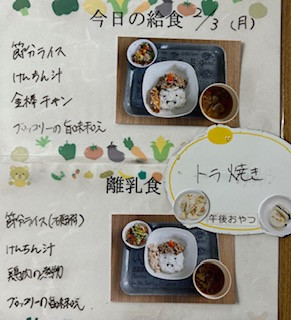 今日の給食 2/3(月)
節分ライス
けんちん汁
金棒チキン
ブロッコリーの旨味和え
トラ焼き
午後おやつ
離乳食
節分ライス
けんちん汁
鶏肉の煮物
ブロッコリーの旨味和え